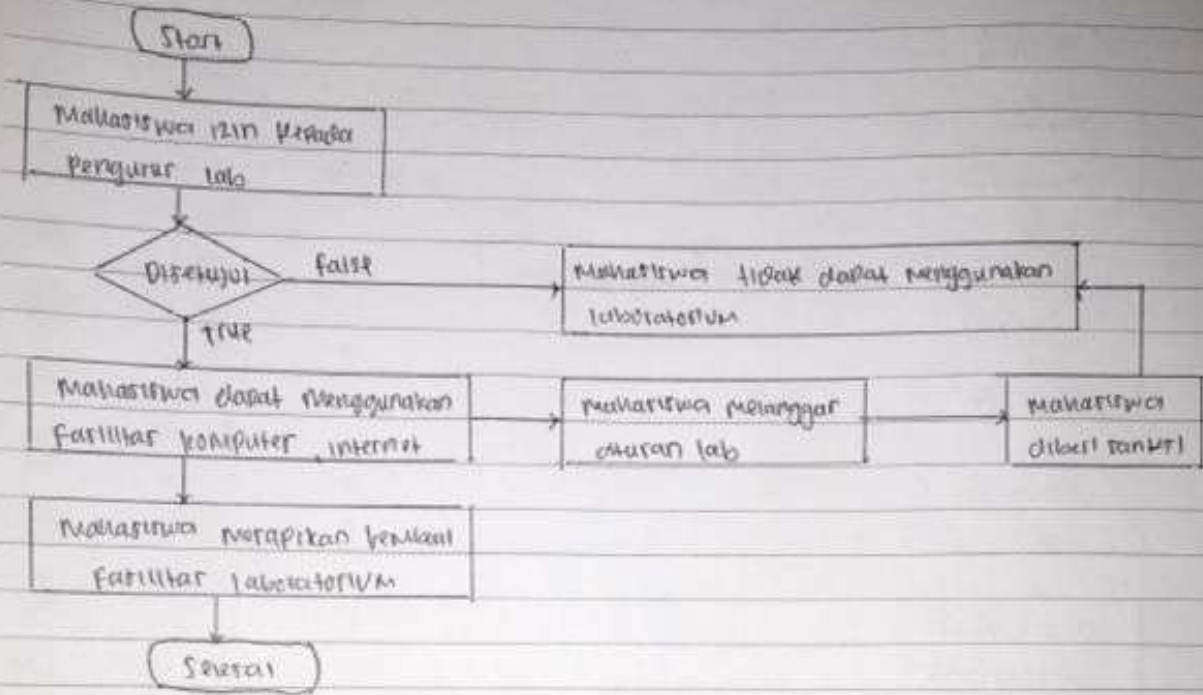 Start
Mahasiswa izin kepada
Pengurus lab
Disetujui
False
True
Mahasiswa tidak dapat menggunakan
laboratorium
Mahasiswa dapat menggunakan
fasilitas komputer internet
Mahasiswa melanggar
aturan lab
Mahasiswa
diberi sanksi
Mahasiswa merapikan kembali
Fasilitas laboratorium
Selesai